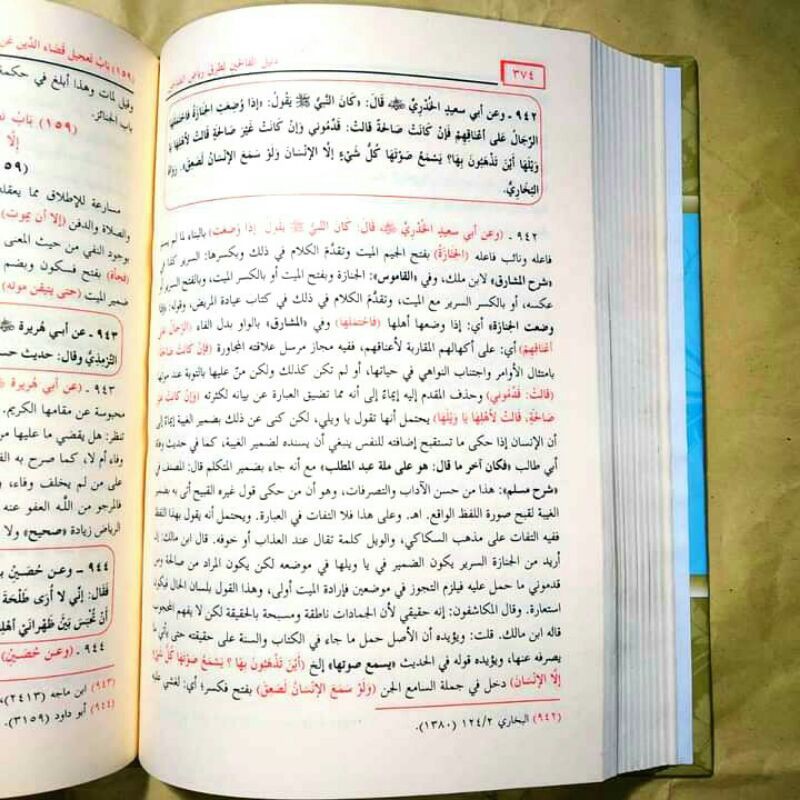 ٣٧٤
دليل الفالحين لطرق رياض الصالحين
٩٤٢ - وعن أبي سعيدٍ الخُدْرِيِّ ﷺ قَالَ: «كَانَ النَّبِيُّ ﷺ يَقُولُ: «إِذَا وُضِعَتِ الجَنَازَةُ فَاحْتَمَلَهَا
الرِّجَالُ عَلَى أَعْنَاقِهِمْ فَإِنْ كَانَتْ صَالحَةً قالتْ: قَدِّمُوني وَإنْ كَانَتْ غَيْرَ صَالحَةٍ قَالَتْ لأَهْلِهَا يَا
وَيْلَهَا أَيْنَ تَذْهَبُونَ بِهَا؟ يَسْمَعُ صَوْتَهَا كُلُّ شَيْءٍ إلَّا الإنْسَانَ وَلَوْ سَمِعَ الإنْسَانُ لَصَعِقَ». رواه
البُخَارِيُّ.
٩٤٢ - (وعن أبي سعيدٍ الخُدْرِيِّ ﷺ قال: كان النَّبيُّ ﷺ يقول إذا وُضعت) بالبناء لما لم يسم
فاعله ونائب فاعله (الجَنازَةُ) بفتح الجيم الميت وتقدَّمَ الكلام في ذلك وبكسرها: السرير كذا في
«شرح المشارق» لابن ملك، وفي «القاموس»: الجنازة وبفتح الميت أو بالكسر الميت، وبالفتح السرير أو
عكسه، أو بالكسر السرير مع الميت، وتقدَّمَ الكلام في ذلك في كتاب عيادة المريض، وقوله: «إذا
وضعت الجنازة» أي: إذا وضعها أهلها (فَاحْتَمَلَهَا) وفي «المشارق» بالواو بدل الفاء (الرِّجَالُ عَلَى
أعْنَاقِهِمْ) أي: على أكهالهم المقاربة لأعناقهم، ففيه مجاز مرسل علاقته المجاورة (فإنْ كانتْ صالحة)
بامتثال الأوامر واجتناب النواهي في حياتها، أو لم تكن كذلك ولكن منّ عليها بالتوبة عند موتها
(قالتْ: قَدِّمُوني) وحذف المقدم إليه إيماءً إلى أنه مما تضيق العبارة عن بيانه لكثرته (وَإنْ كانَتْ غيْرَ
صَالحَةٍ، قَالَتْ لأهْلِهَا يَا وَيْلَهَا) يحتمل أنها تقول يا ويلي، لكن كنى عن ذلك بضمير الغيبة إيماءً إلى
أن الإنسان إذا حكى ما تستقبح إضافته للنفس ينبغي أن يسنده لضمير الغيبة، كما في حديث وفاة
أبي طالب «فكان آخر ما قال: هو على ملة عبد المطلب» مع أنه جاء بضمير المتكلم قال: المصنف في
«شرح مسلم»: هذا من حسن الآداب والتصرفات، وهو أن من حكى قول غيره القبيح أتى به بضمير
الغيبة لقبح صورة اللفظ الواقع. اهـ. وعلى هذا فلا التفات في العبارة. ويحتمل أنه يقول بهذا اللفظ
ففيه التفات على مذهب السكاكي، والويل كلمة تقال عند العذاب أو خوفه. قال ابن مالك: إن
أريد من الجنازة السرير يكون الضمير في يا ويلها في موضعه لكن يكون المراد من صالحة ومن
قدموني ما حمل عليه فيلزم التجوز في موضعين فإرادة الميت أولى، وهذا القول بلسان الحال فيكون
استعارة. وقال المكاشفون: إنه حقيقي لأن الجمادات ناطقة ومسبحة بالحقيقة لكن لا يفهم المحجوب
قاله ابن مالك. قلت: ويؤيده أن الأصل حمل ما جاء في الكتاب والسنة على حقيقته حتى يأتي ما
يصرفه عنها، ويؤيده قوله في الحديث «يسمع صوتها» إلخ (أَيْنَ تَذْهَبُونَ بِهَا ؟ يَسْمَعُ صَوْتها كُلُّ شَيْءٍ
إلَّا الإنْسَان) دخل في جملة السامع الجن (وَلَوْ سَمِعَ الإنْسَانُ لَصَعِقَ) بفتح فكسر؛ أي: لغشي عليه
(٩٤٢) البخاري ١٢٤/٢ (١٣٨٠).
(١٥٩) بَابُ تعجيل قضاء الدَّين عن
وقيل لمات وهذا أبلغ في حكمة
باب الجنائز.
(١٥٩) بَابُ
إلَّا
مسارعة للإطلاق مما يعقله
والصلاة والدفن (إلا أن يموت)
بوجود النفي من حيث المعنى
(فجأة) بفتح فسكون وبضم
ضمير الميت (حتى يتيقن موته)
٩٤٣ - عن أبي هريرة ﷺ
التِّرمذِيُّ وقال: حديث حسن
٩٤٣ - (عن أبي هريرة
محبوسة عن مقامها الكريم.
تنظر: هل يقضي ما عليها من
وفاء أم لا، كما صرح به
على من لم يخلف وفاء،
فالمرجو من اللَّه العفو عنه
الرياض زيادة «صحيح» ولا
٩٤٤ - وعن حُصَيْنِ بنِ
فَقَالَ: إنِّي لا أُرَى طَلْحَةَ
أَنْ تُحْبَسَ بَيْنَ ظَهْرَانَيْ أَهْلِهِ
٩٤٤ - (وعن حُصَيْن)
(٩٤٣) ابن ماجه (٢٤١٣)،
(٩٤٤) أبو داود (٣١٥٩).